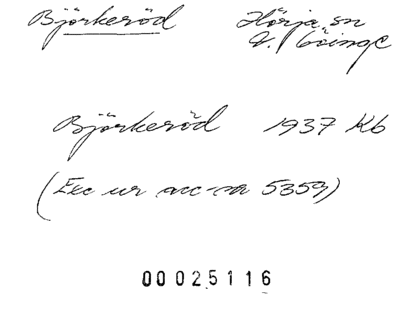 Björkeröd Hörja sn
V. Göinge
Björkeröd 1937 Kb
(Exc ur acc-ca 5359)
00025116